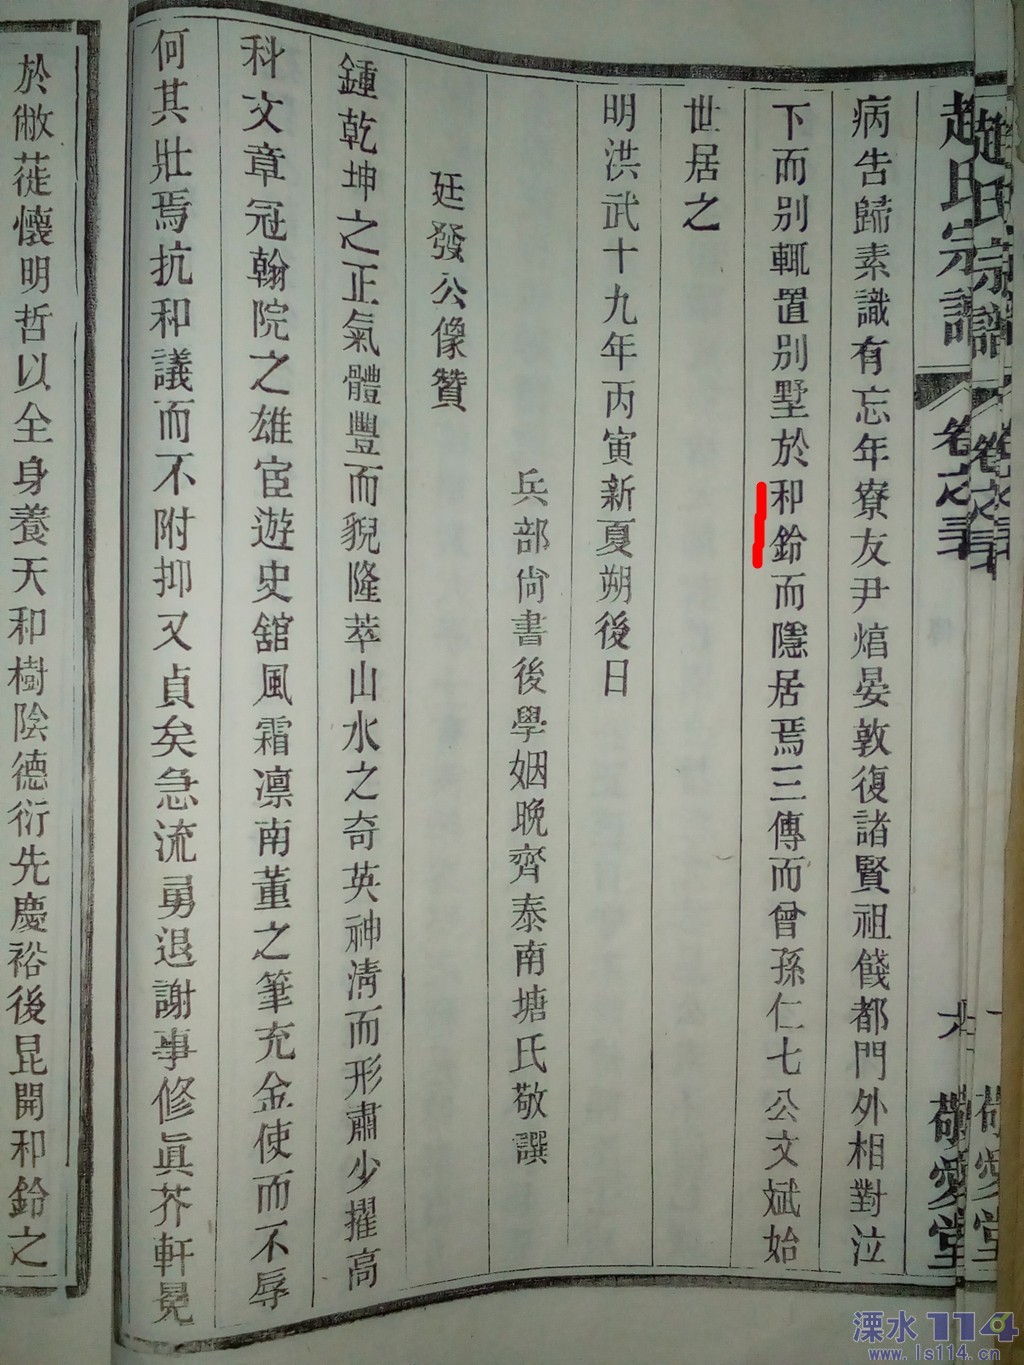 趙氏宗譜 卷之三 敬愛堂
病告歸素識有忘年寮友尹焞晏敦復諸賢祖餞都門外相對泣
下而別輒置別墅於和鈴而隱居焉三傳而曾孫仁七公文斌始
世居之
明洪武十九年丙寅新夏朔後日
兵部尙書後學姻晚齊泰南塘氏敬譔
廷發公像贊
鍾乾坤之正氣體豐而貌隆萃山水之奇英神淸而形肅少擢高
科文章冠翰院之雄宦遊史舘風霜凛南董之筆充金使而不辱
何其壯焉抗和議而不附抑又貞矣急流勇退謝事修眞芥軒冕
於敝蓰懷明哲以全身養天和樹陰德衍先慶裕後昆開和鈴之
溧水114
www.ls114.cn